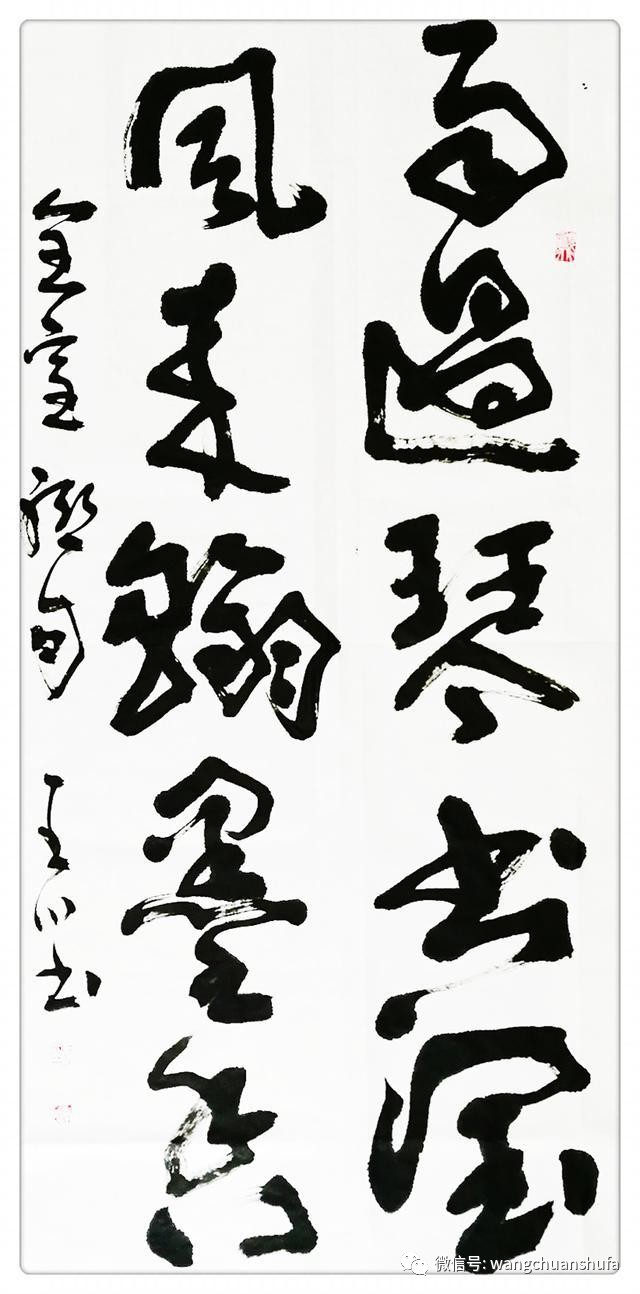 雨過琴书润
風来翰墨香
室聯句 王川书
微信号: wangchuanshufa